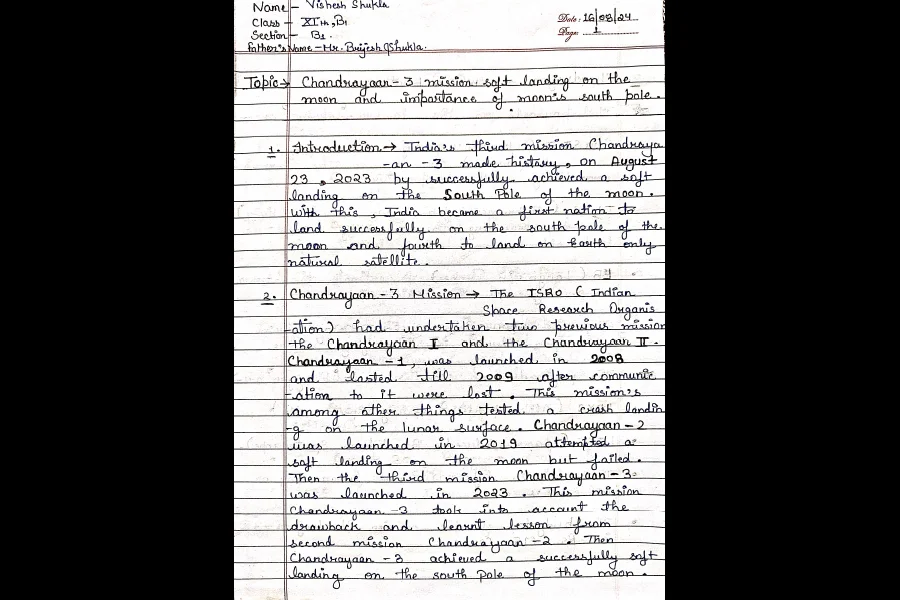 Name - Vishesh Shukla
Class - XIth, B1
Date: 16/08/24
Section - B1.
Page: 1
Father's Name - Mr. Brijesh Shukla.
Topic → Chandrayaan - 3 mission soft landing on the
moon and importance of moon's south pole.
1. Introduction → India's third mission Chandraya
-an -3 made history, on August
23, 2023 by successfully achieved a soft
landing on the South Pole of the moon.
With this, India became a first nation to
land successfully on the south pole of the
moon and fourth to land on Earth only
natural satellite.
2. Chandrayaan - 3 Mission → The ISRO ( Indian
Space Research Organis
-ation) had undertaken two previous mission
the Chandrayaan I and the Chandrayaan II.
Chandrayaan - 1, was launched in 2008
and lasted till 2009 after communic
-ation to it were lost. This mission's
among other things tested a crash landin
-g on the lunar surface. Chandrayaan - 2
was launched in 2019 attempted a
soft landing on the moon but failed.
Then the third mission Chandrayaan - 3
was launched in 2023. This mission
Chandrayaan - 3 took into account the
drawback and learnt lesson from
second mission Chandrayaan - 2. Then
Chandrayaan - 3 achieved a successfully soft
landing on the south pole of the moon.